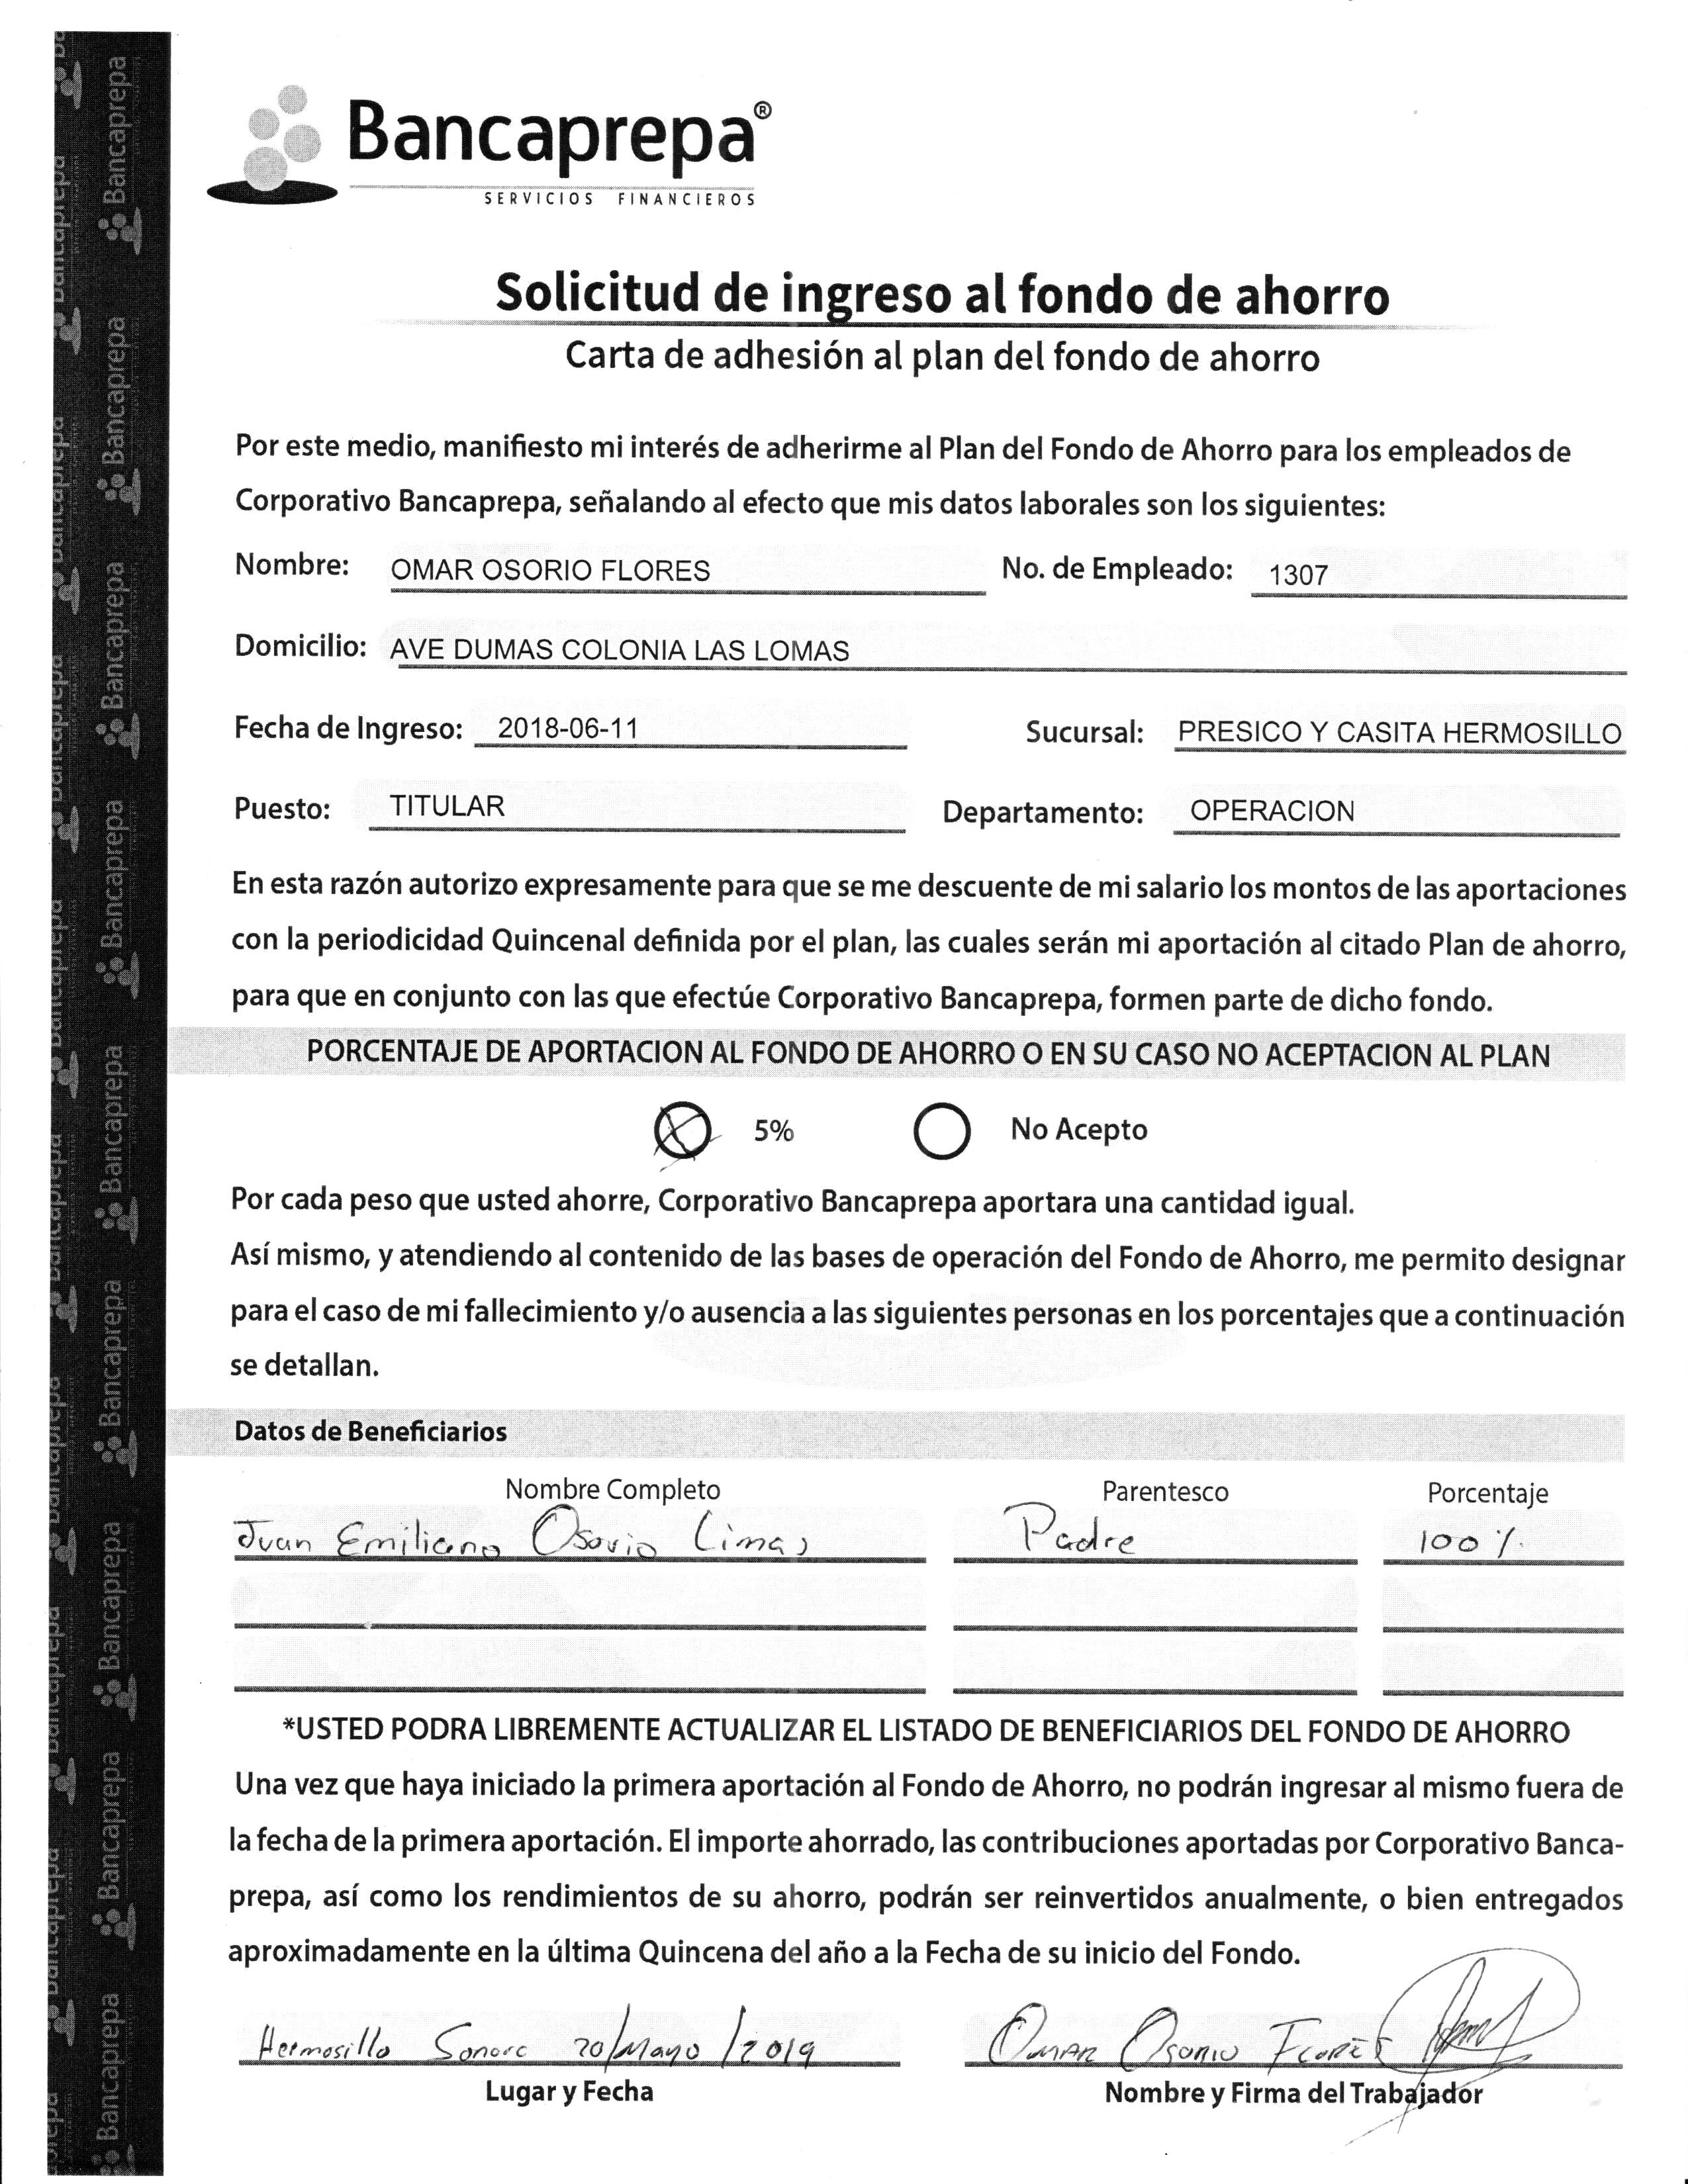 Bancaprepa®
SERVICIOS FINANCIEROS
Solicitud de ingreso al fondo de ahorro
Carta de adhesión al plan del fondo de ahorro
Por este medio, manifiesto mi interés de adherirme al Plan del Fondo de Ahorro para los empleados de
Corporativo Bancaprepa, señalando al efecto que mis datos laborales son los siguientes:
Nombre: OMAR OSORIO FLORES No. de Empleado: 1307
Domicilio: AVE DUMAS COLONIA LAS LOMAS
Fecha de Ingreso: 2018-06-11 Sucursal: PRESICO Y CASITA HERMOSILLO
Puesto: TITULAR Departamento: OPERACION
En esta razón autorizo expresamente para que se me descuente de mi salario los montos de las aportaciones
con la periodicidad Quincenal definida por el plan, las cuales serán mi aportación al citado Plan de ahorro,
para que en conjunto con las que efectúe Corporativo Bancaprepa, formen parte de dicho fondo.
PORCENTAJE DE APORTACION AL FONDO DE AHORRO O EN SU CASO NO ACEPTACION AL PLAN
5% No Acepto
Por cada peso que usted ahorre, Corporativo Bancaprepa aportara una cantidad igual.
Así mismo, y atendiendo al contenido de las bases de operación del Fondo de Ahorro, me permito designar
para el caso de mi fallecimiento y/o ausencia a las siguientes personas en los porcentajes que a continuación
se detallan.
Datos de Beneficiarios
Nombre Completo Parentesco Porcentaje
Juan Emiliano Osorio Limas Padre 100%
*USTED PODRA LIBREMENTE ACTUALIZAR EL LISTADO DE BENEFICIARIOS DEL FONDO DE AHORRO
Una vez que haya iniciado la primera aportación al Fondo de Ahorro, no podrán ingresar al mismo fuera de
la fecha de la primera aportación. El importe ahorrado, las contribuciones aportadas por Corporativo Banca-
prepa, así como los rendimientos de su ahorro, podrán ser reinvertidos anualmente, o bien entregados
aproximadamente en la última Quincena del año a la Fecha de su inicio del Fondo.
Hermosillo Sonora 20/Mayo/2019 OMAR OSORIO FLORES
Lugar y Fecha Nombre y Firma del Trabajador